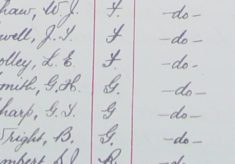 haw, W.J. F. -do-
well, J.S. F -do-
olley, L.E. F -do-
mith, G.H. G. -do-
harp, G.S. G -do-
right, B. G. -do-